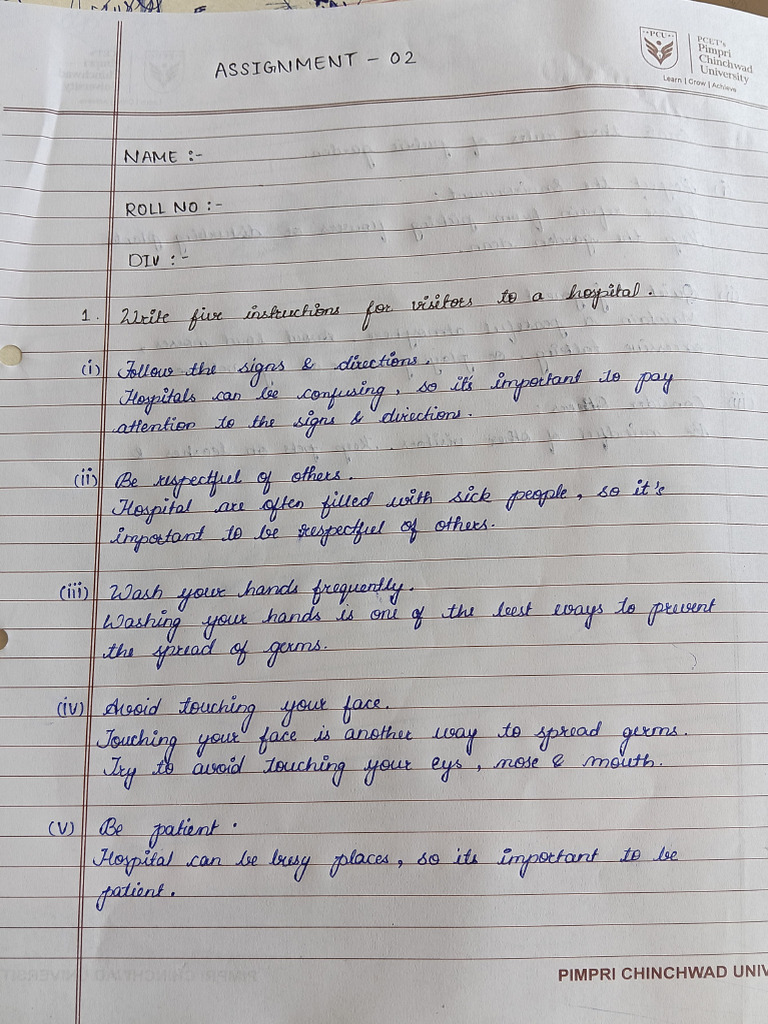 PCU
PCET's
Pimpri
Chinchwad
University
Learn | Grow | Achieve
ASSIGNMENT - 02
NAME :-
ROLL NO :-
DIV :-
1. Write five instructions for visitors to a hospital.
(i) Follow the signs & directions.
Hospitals can be confusing, so its important to pay
attention to the signs & directions.
(ii) Be respectful of others.
Hospital are often filled with sick people, so it's
important to be respectful of others.
(iii) Wash your hands frequently.
Washing your hands is one of the best ways to prevent
the spread of germs.
(iv) Avoid touching your face.
Touching your face is another way to spread germs.
Try to avoid touching your eys, nose & mouth.
(v) Be patient.
Hospital can be busy places, so its important to be
patient.
PIMPRI CHINCHWAD UNIV